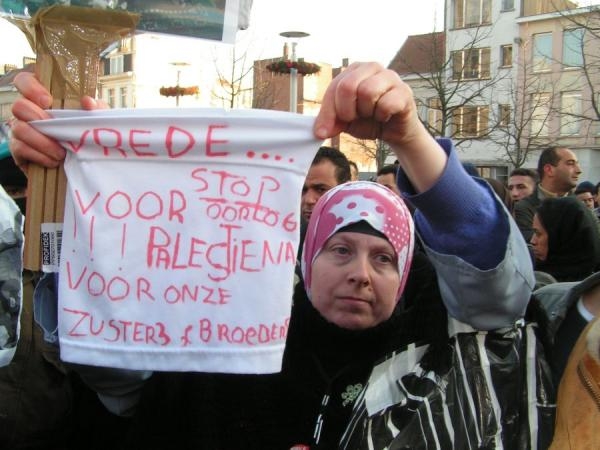 VREDE....
STOP
VOOR OORLOG
!!! PALESTIENA
VOOR ONZE
ZUSTERS & BROEDERS
PROFIDEX